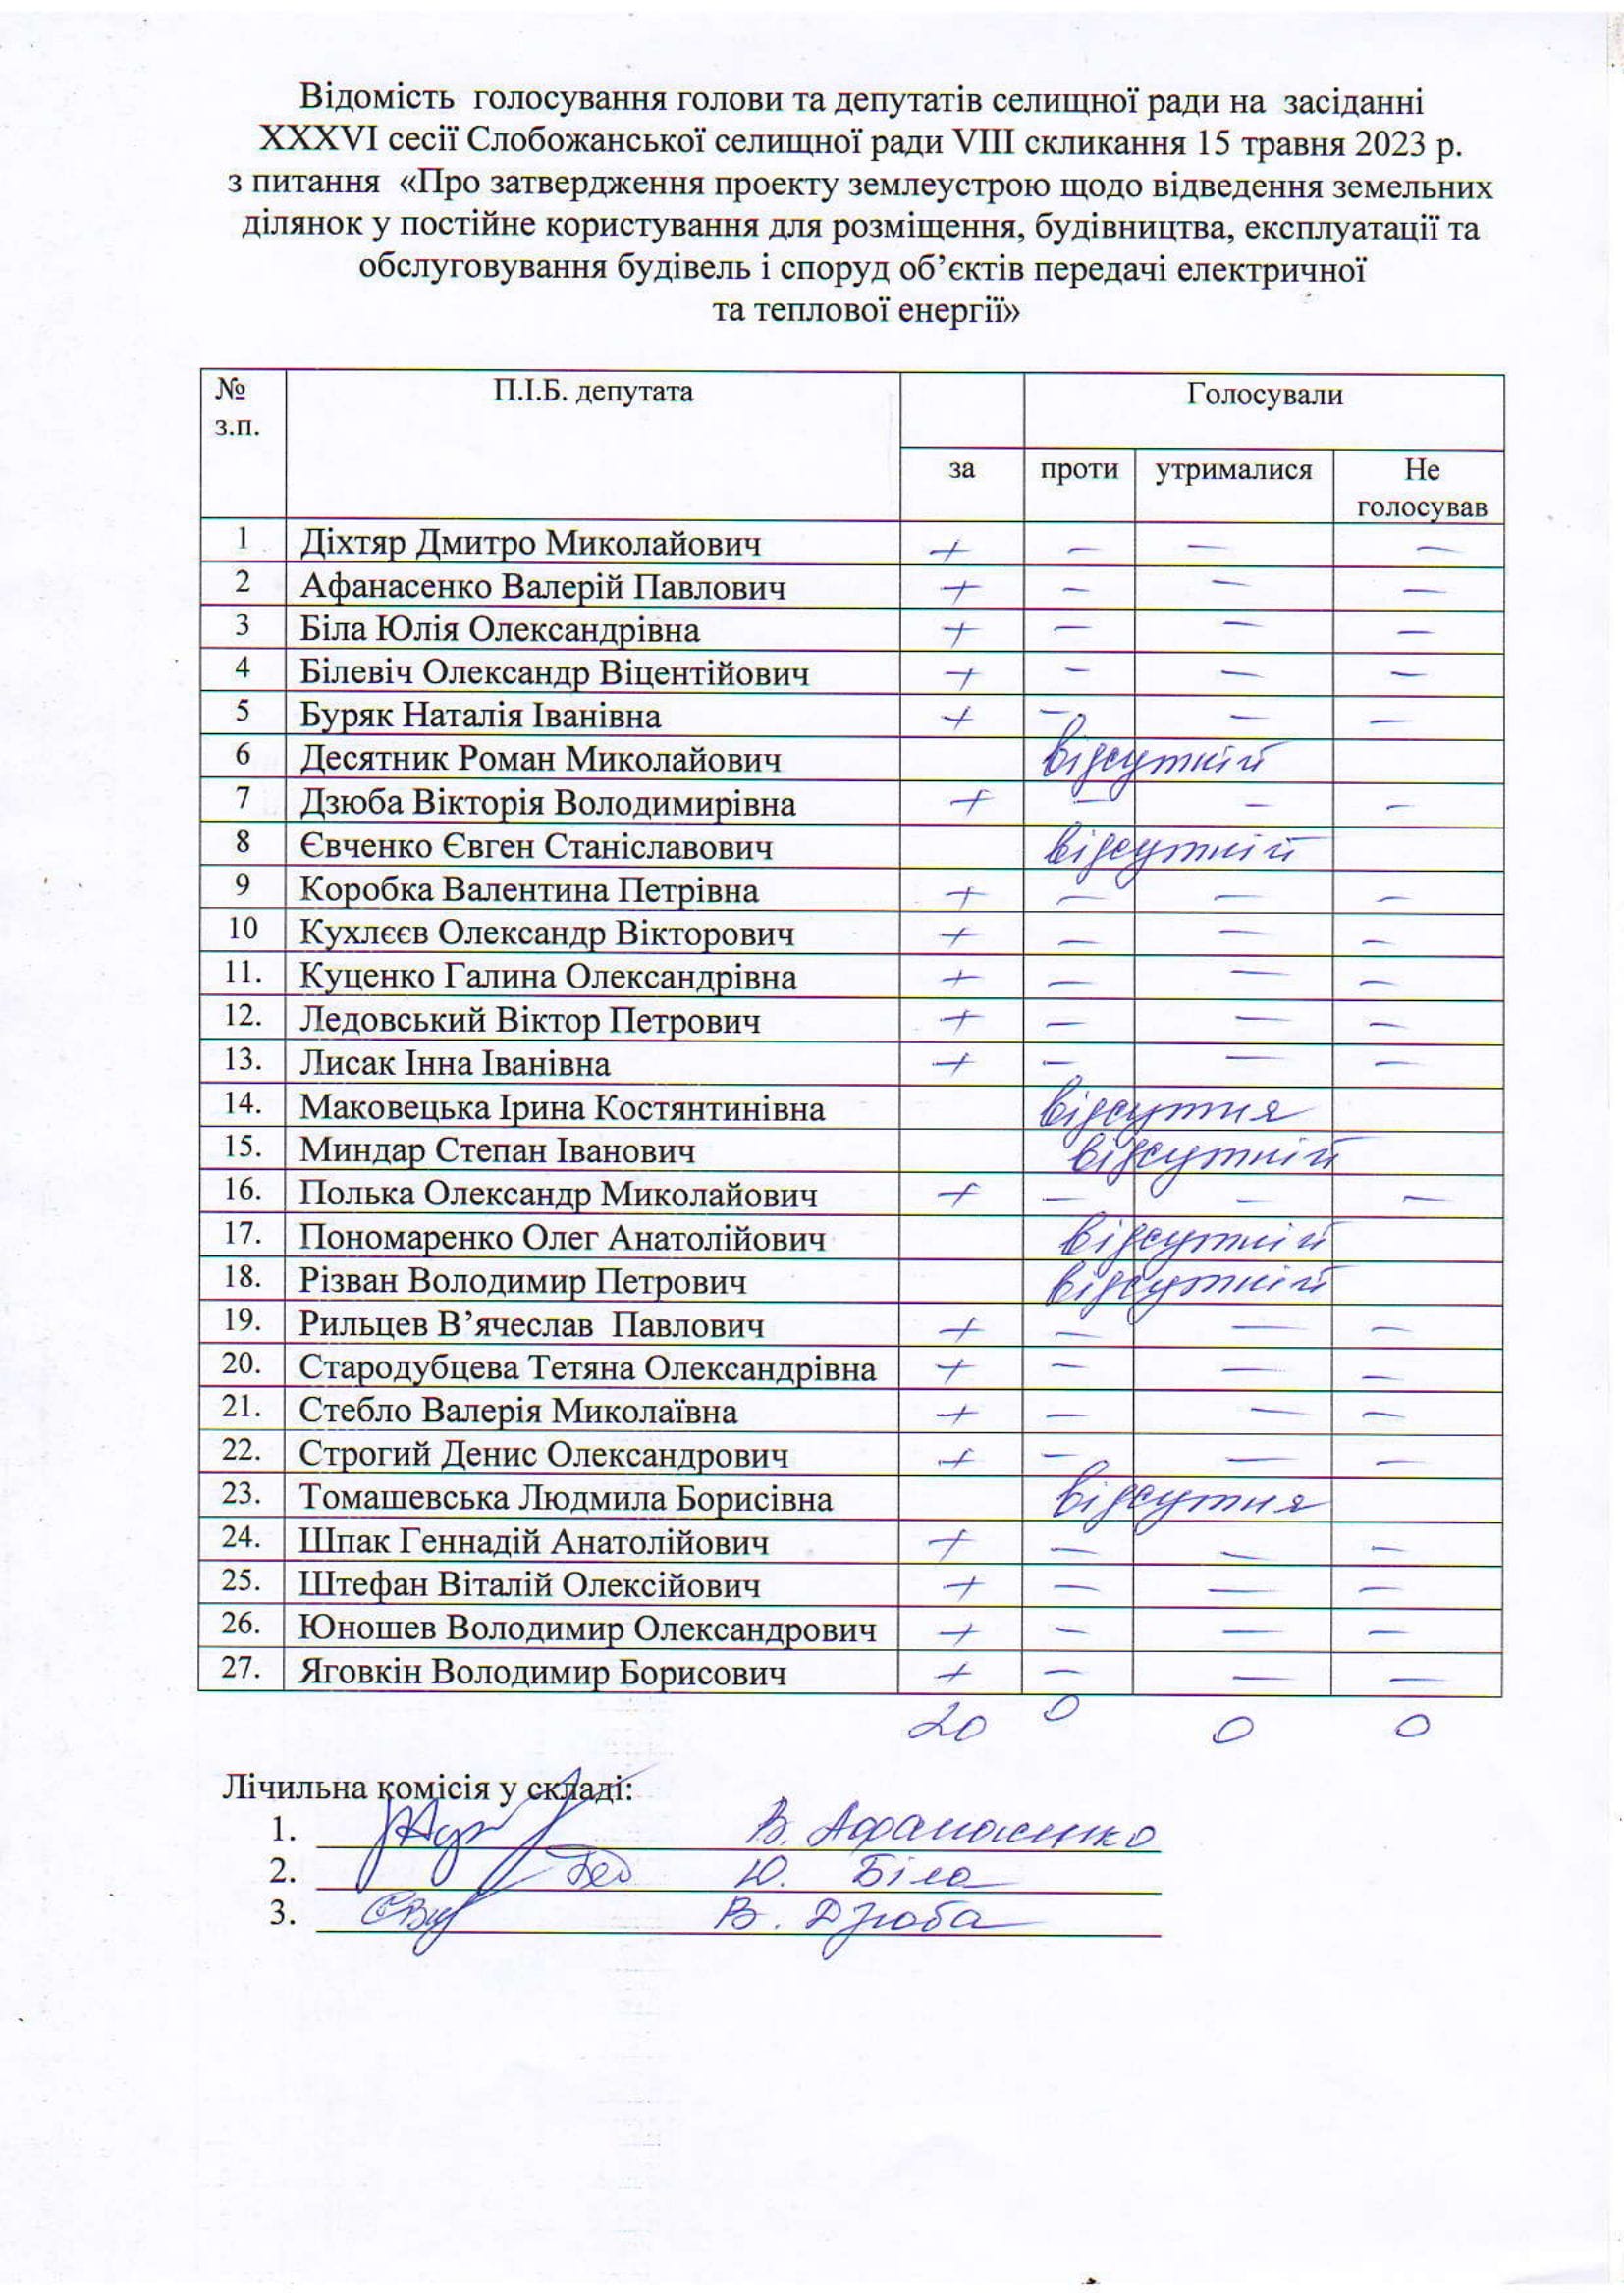 Відомість голосування голови та депутатів селищної ради на засіданні
XXXVI сесії Слобожанської селищної ради VIII скликання 15 травня 2023 р.
з питання «Про затвердження проекту землеустрою щодо відведення земельних
ділянок у постійне користування для розміщення, будівництва, експлуатації та
обслуговування будівель і споруд об’єктів передачі електричної
та теплової енергії»
№ з.п. П.І.Б. депутата Голосували
за проти утрималися Не голосував
1 Діхтяр Дмитро Миколайович + – – –
2 Афанасенко Валерій Павлович + – – –
3 Біла Юлія Олександрівна + – – –
4 Білевіч Олександр Віцентійович + – – –
5 Буряк Наталія Іванівна + – – –
6 Десятник Роман Миколайович відсутній
7 Дзюба Вікторія Володимирівна + – – –
8 Євченко Євген Станіславович відсутній
9 Коробка Валентина Петрівна + – – –
10 Кухлєєв Олександр Вікторович + – – –
11. Куценко Галина Олександрівна + – – –
12. Ледовський Віктор Петрович + – – –
13. Лисак Інна Іванівна + – – –
14. Маковецька Ірина Костянтинівна відсутня
15. Миндар Степан Іванович відсутній
16. Полька Олександр Миколайович + – – –
17. Пономаренко Олег Анатолійович відсутній
18. Різван Володимир Петрович відсутній
19. Рильцев В’ячеслав Павлович + – – –
20. Стародубцева Тетяна Олександрівна + – – –
21. Стебло Валерія Миколаївна + – – –
22. Строгий Денис Олександрович + – – –
23. Томашевська Людмила Борисівна відсутня
24. Шпак Геннадій Анатолійович + – – –
25. Штефан Віталій Олексійович + – – –
26. Юношев Володимир Олександрович + – – –
27. Яговкін Володимир Борисович + – – –
20 0 0 0
Лічильна комісія у складі:
1. В. Афанасенко
2. Ю. Біла
3. В. Дзюба